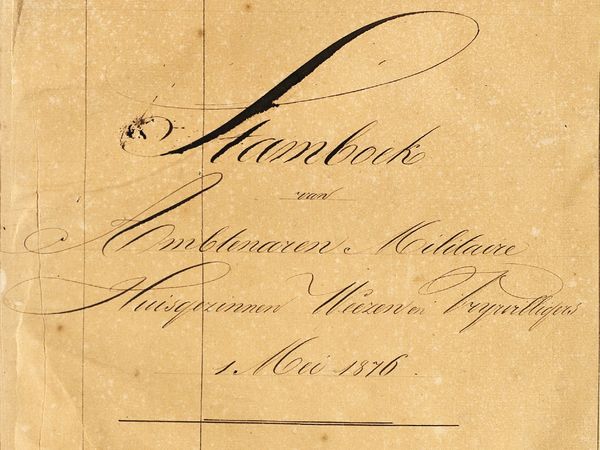 Stamboek
van
Ambtenaren Militaire
Huisgezinnen Weezen en Vrywilligers
1 Mei 1876.